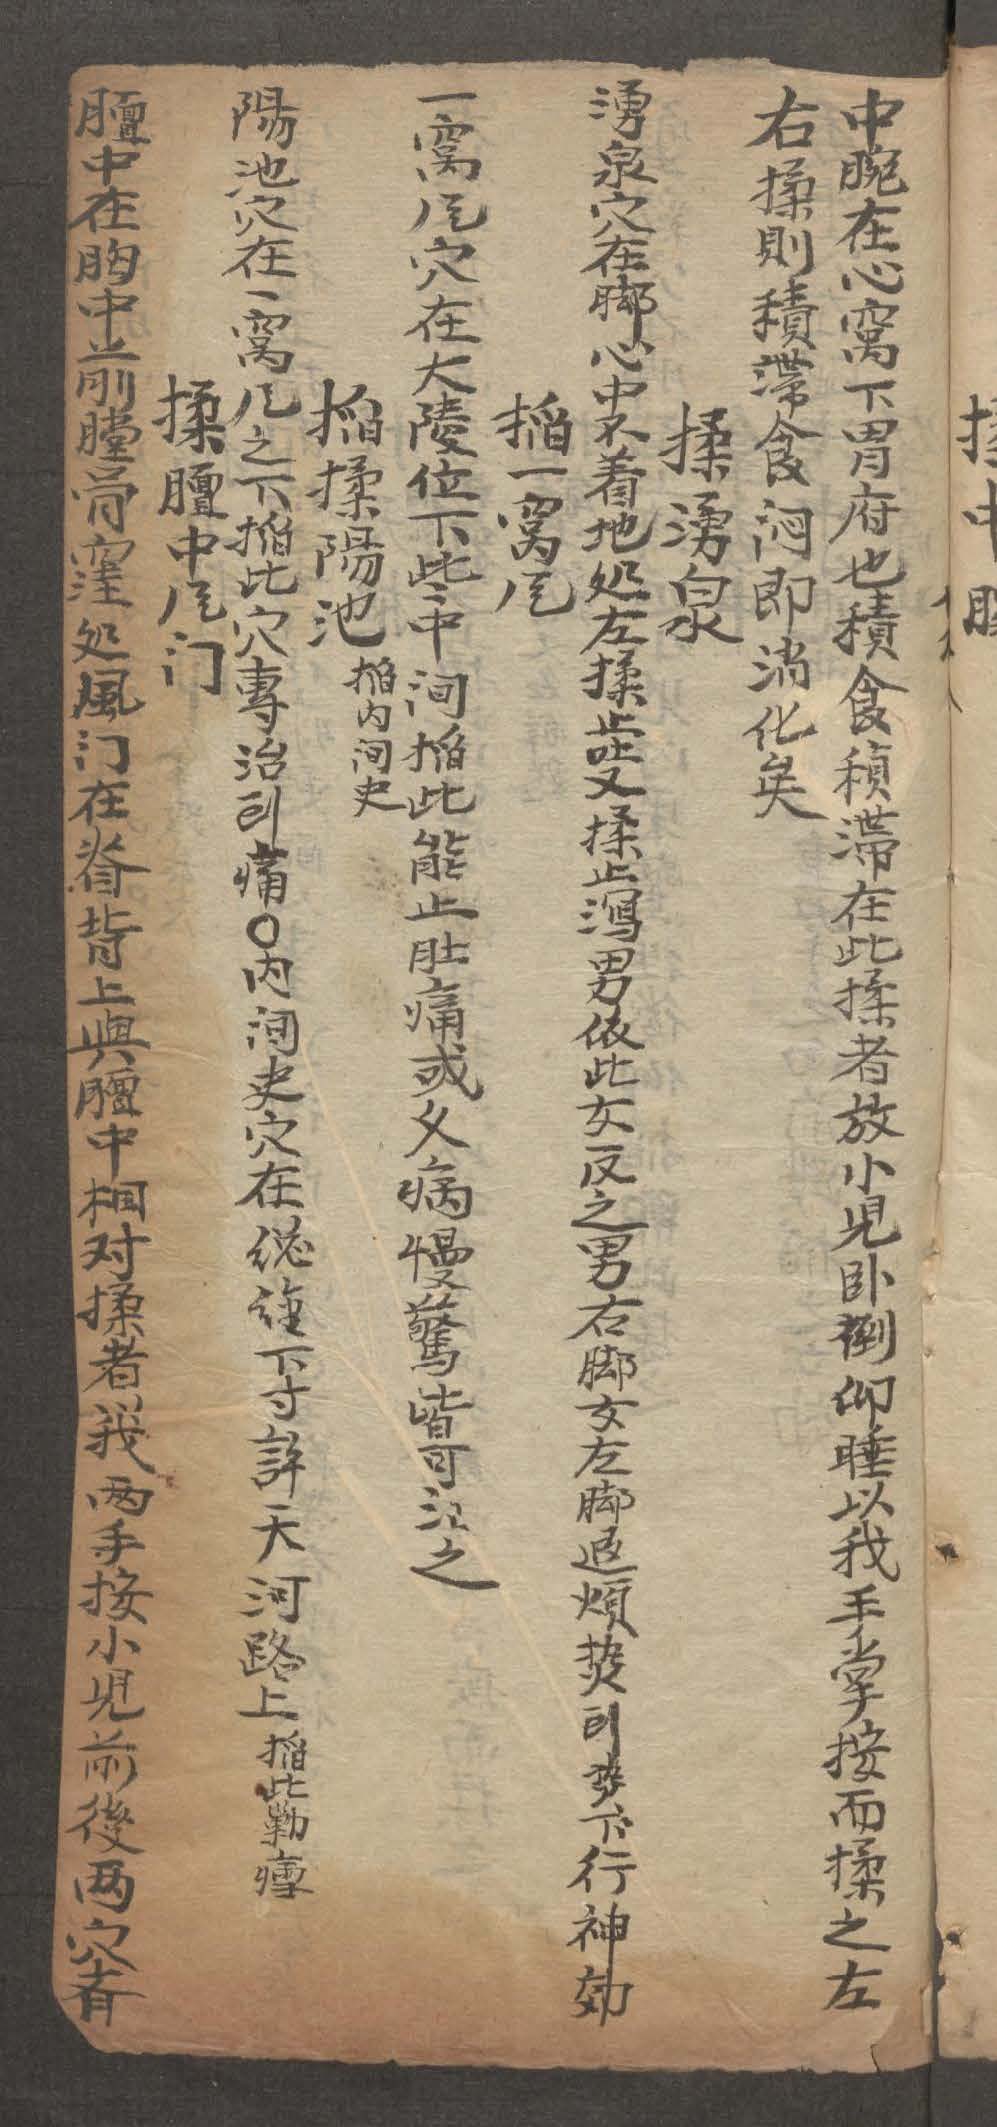 揉中
中腕在心窩下胃府也積食積滯在此揉者放小児卧倒仰睡以我手掌按而揉之左
右揉則積滯食闷即消化矣
揉湧泉
湧泉穴在脚心中不着地処左揉止吐又揉止瀉男依此女反之男右脚女左脚退煩热引热下行神効
掐一窩风
一窩风穴在大陵位下些中间掐此能止肚痛或久病慢驚皆可治之
掐揉陽池 掐内间史
陽池穴在一窩凡之下掐此穴專治引痛○内间史穴在総筋下寸許天河路上掐此勒瘧
揉膻中风门
膻中在胸中亠前膛骨窪処風门在脊背上與膻中相对揉者我两手按小児前後两穴者